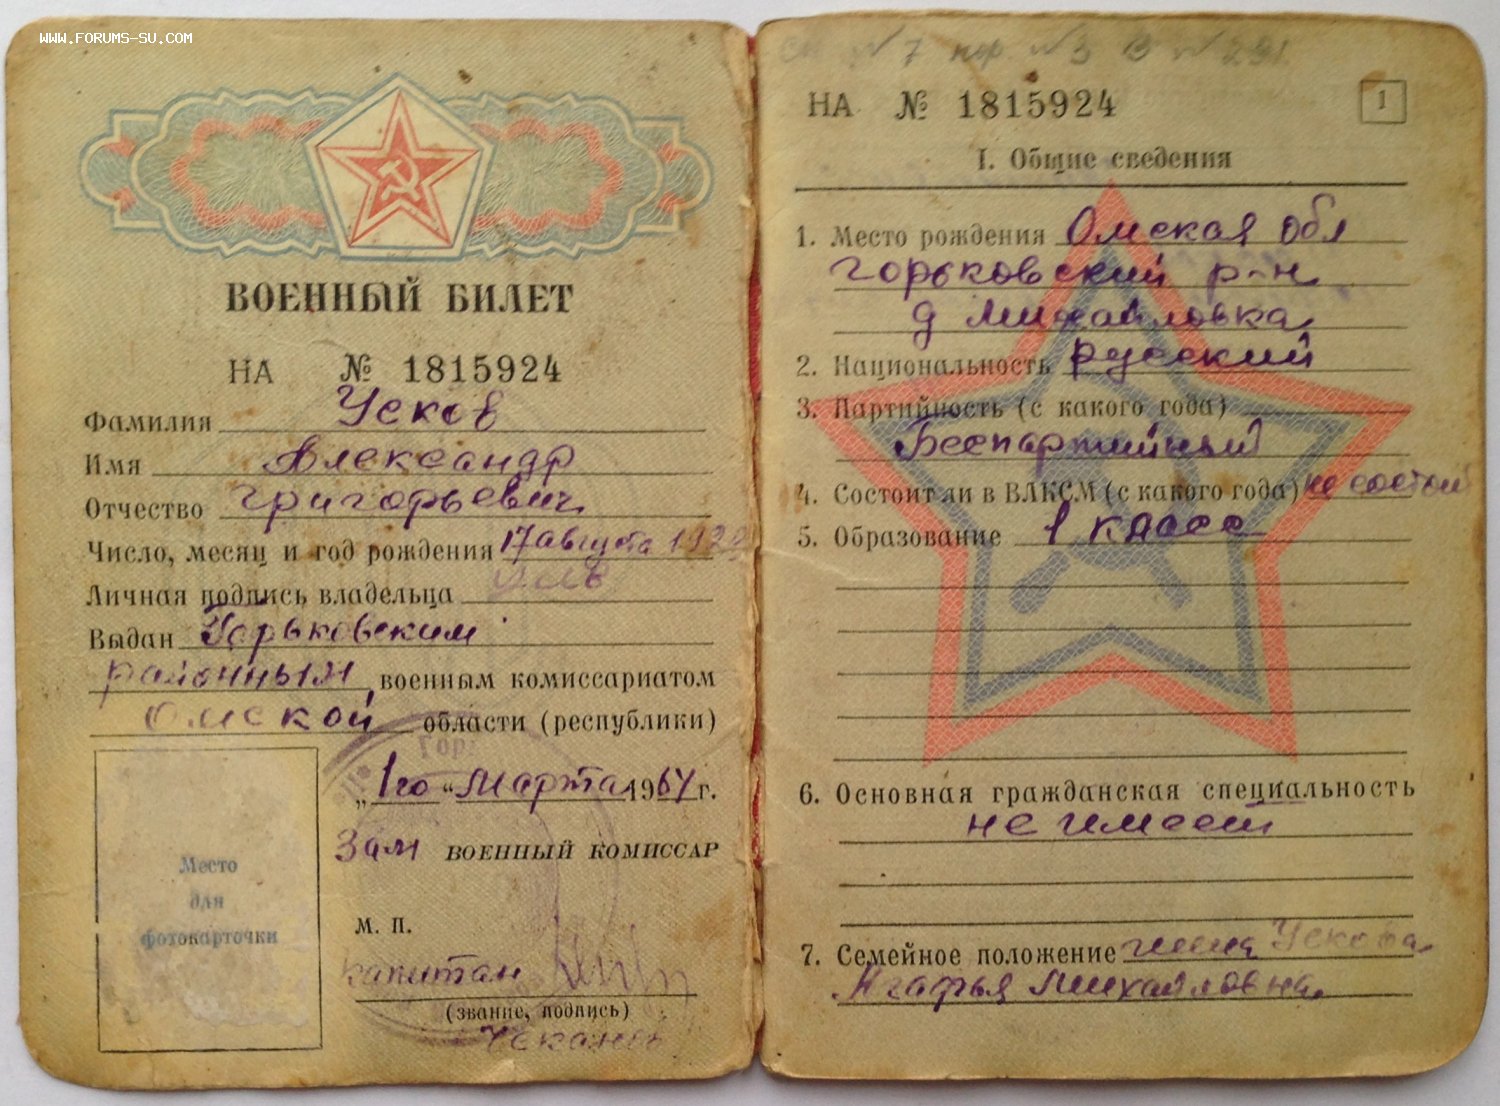 www.forums-su.com
ВОЕННЫЙ БИЛЕТ
НА № 1815924
Фамилия Усков
Имя Александр
Отчество Григорьевич
Число, месяц и год рождения 17 августа
Личная подпись владельца
Выдан Горьковским
районным военным комиссариатом
Омской области (республики)
„1го“ Марта 1964 г.
Зам ВОЕННЫЙ КОМИССАР
Место
для
фотокарточки
М. П.
капитан
(звание, подпись)
НА № 1815924
1
I. Общие сведения
1. Место рождения Омская обл
Горьковский р-н
д Михайловка
2. Национальность русский
3. Партийность (с какого года)
Беспартийный
4. Состоит ли в ВЛКСМ (с какого года) не состоит
5. Образование 1 класс
6. Основная гражданская специальность
не имеет
7. Семейное положение жена Ускова
Агафья Михайловна